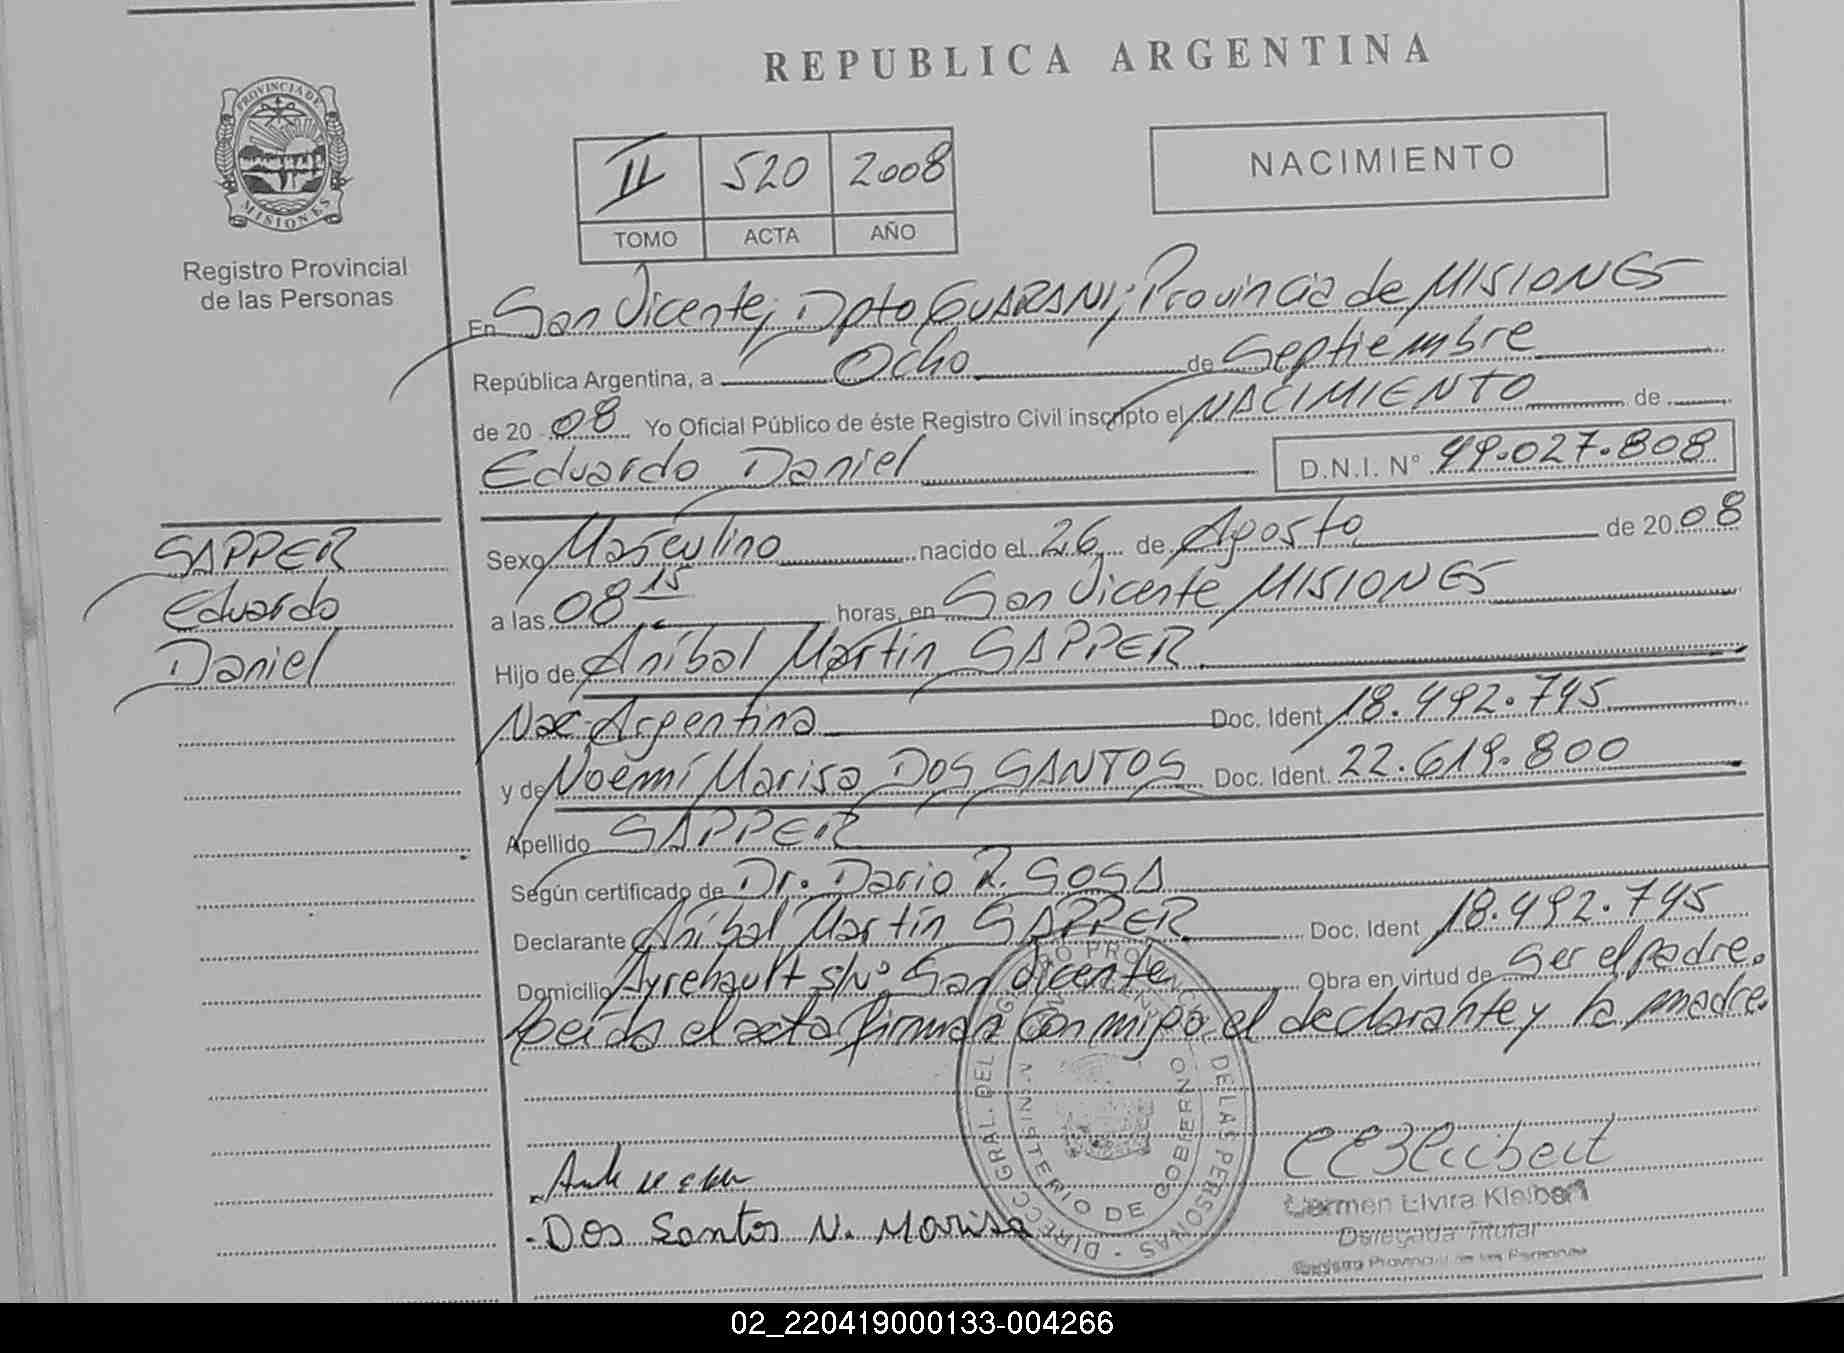 REPUBLICA ARGENTINA
PROVINCIA DE MISIONES
Registro Provincial
de las Personas
II 520 2008
TOMO ACTA AÑO
NACIMIENTO
En San Vicente; Dpto GUARANI; Provincia de MISIONES
República Argentina, a Ocho de Septiembre
de 20 08 Yo Oficial Público de éste Registro Civil inscripto el NACIMIENTO de
Eduardo Daniel D.N.I. N° 49.027.808
SAPPER
Eduardo
Daniel
Sexo Masculino nacido el 26 de Agosto de 20 08
a las 08 15 horas, en San Vicente MISIONES
Hijo de Aníbal Martín SAPPER
Nac Argentina Doc. Ident 18.492.745
y de Noemí Marisa DOS SANTOS Doc. Ident. 22.619.800
Apellido SAPPER
Según certificado de Dr. Dario R. SOSA
Declarante Aníbal Martín SAPPER Doc. Ident 18.492.745
Domicilio Ayrehault s/n° San Vicente Obra en virtud de Ser el padre.
Leída el acta firman con migo el declarante y la madre.
DIRECC. GRAL. DEL REGISTRO PROVINCIAL DE LAS PERSONAS
MINISTERIO DE GOBIERNO
Dos Santos N. Marisa
Carmen Elvira Kleibert
Delegada Titular
Registro Provincial de las Personas
02_220419000133-004266